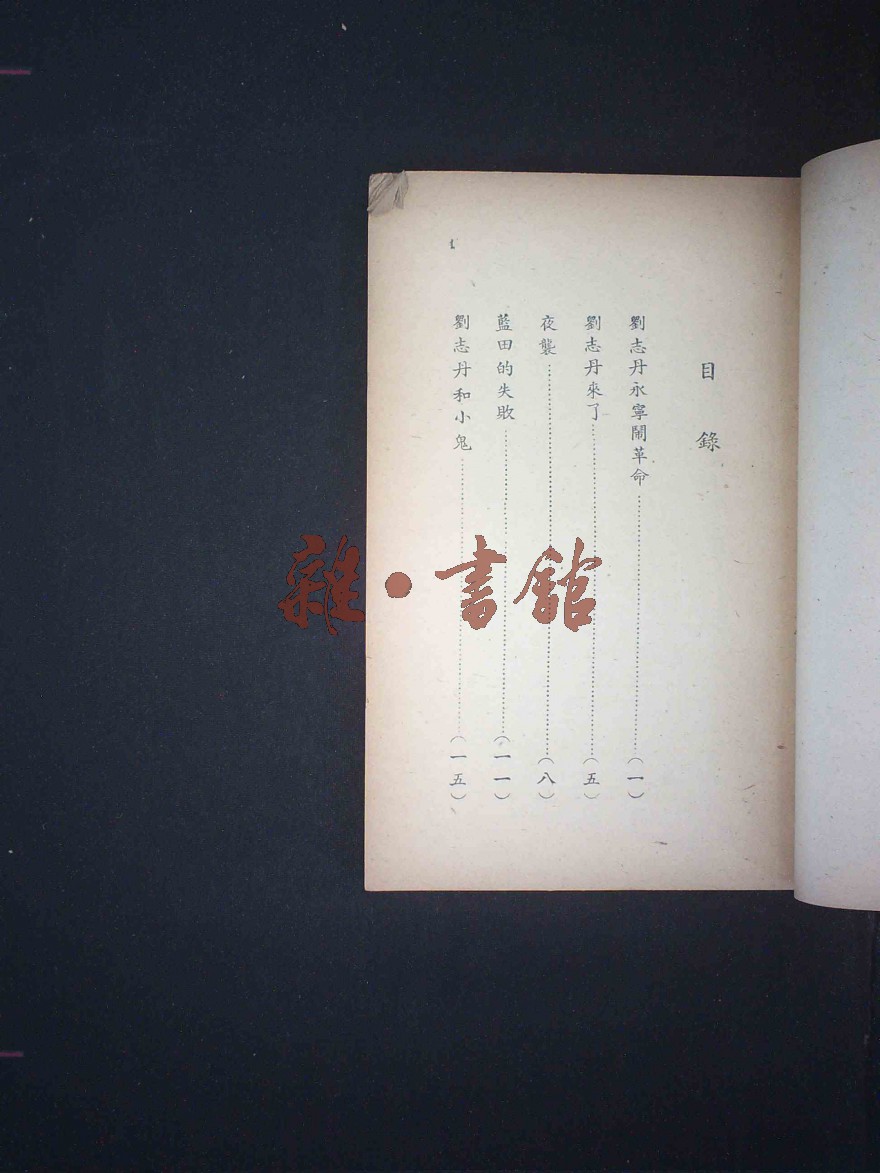 目錄
劉志丹永寧鬧革命……（一）
劉志丹來了……（五）
夜襲……（八）
藍田的失敗……（一一）
劉志丹和小鬼……（一五）
雜·書館